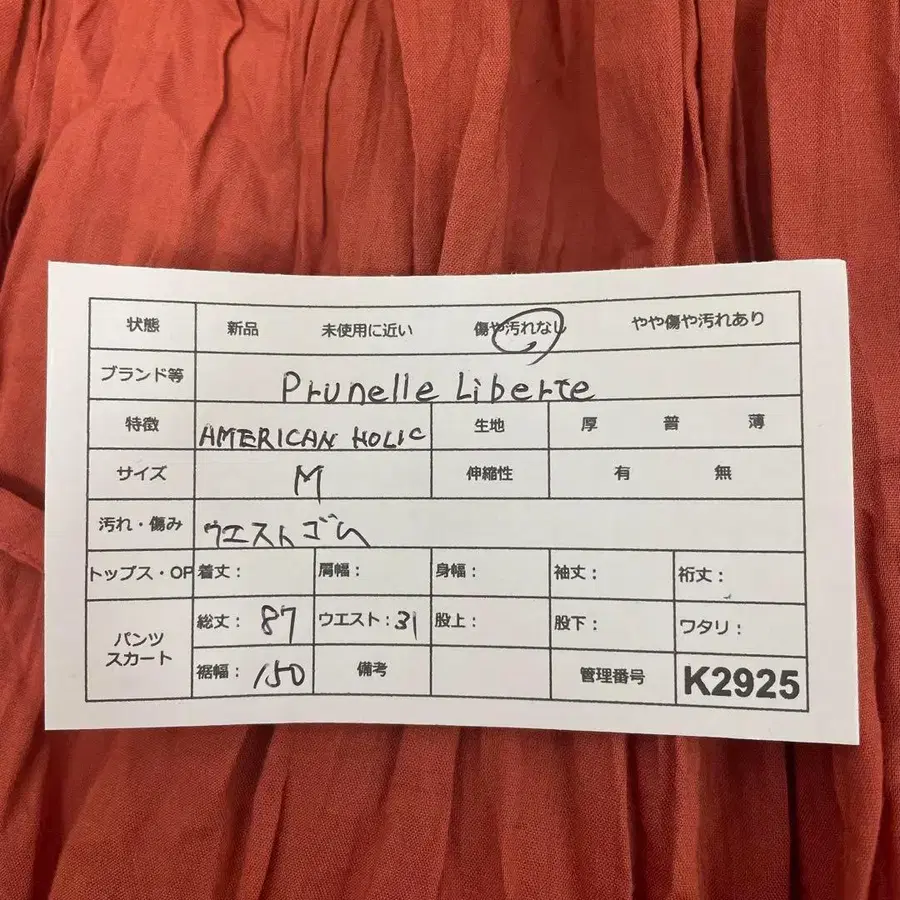 状態 新品 未使用に近い 傷や汚れなし やや傷や汚れあり
ブランド等 Prunelle Liberte
特徴 AMERICAN HOLIC 生地 厚 普 薄
サイズ M 伸縮性 有 無
汚れ・傷み ウエストゴム
トップス・OP 着丈: 肩幅: 身幅: 袖丈: 裄丈:
パンツ
スカート
総丈: 87 ウエスト: 31 股上: 股下: ワタリ:
裾幅: 150 備考 管理番号 K2925